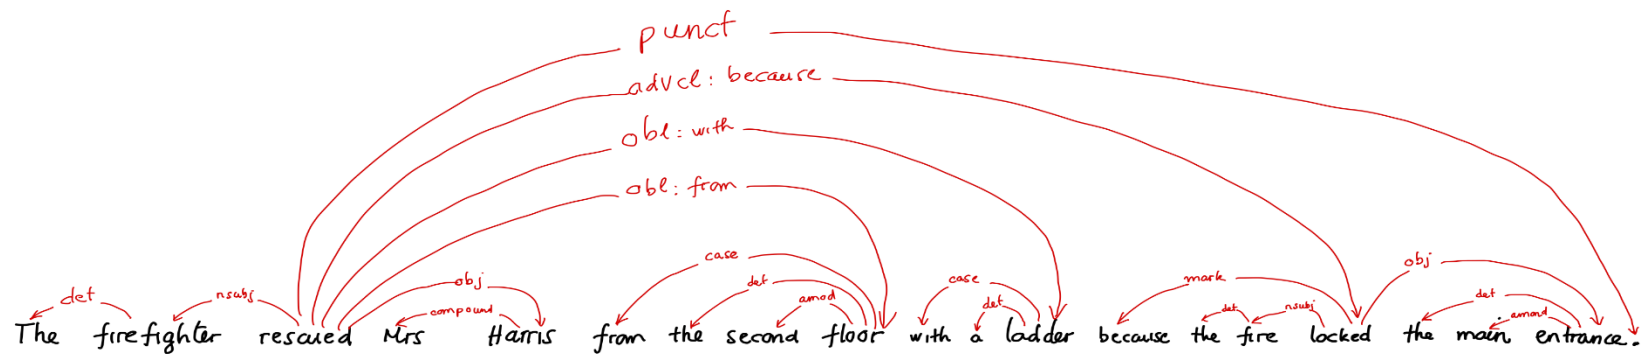 punct
advcl: because
obl: with
obl: from
case
obj
det nsubj obj compound det amod case det mark det nsubj det amod
The firefighter rescued Mrs Harris from the second floor with a ladder because the fire locked the main entrance.